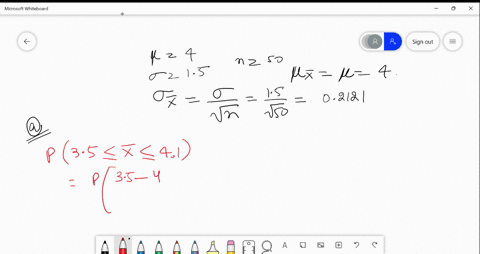 Microsoft Whiteboard
Sign out
μ = 4 n = 50
σ = 1.5 μx̄ = μ = 4.
σx̄ = σ/√n = 1.5/√50 = 0.2121
a
P(3.5 ≤ x̄ ≤ 4.1)
= P[3.5 - 4